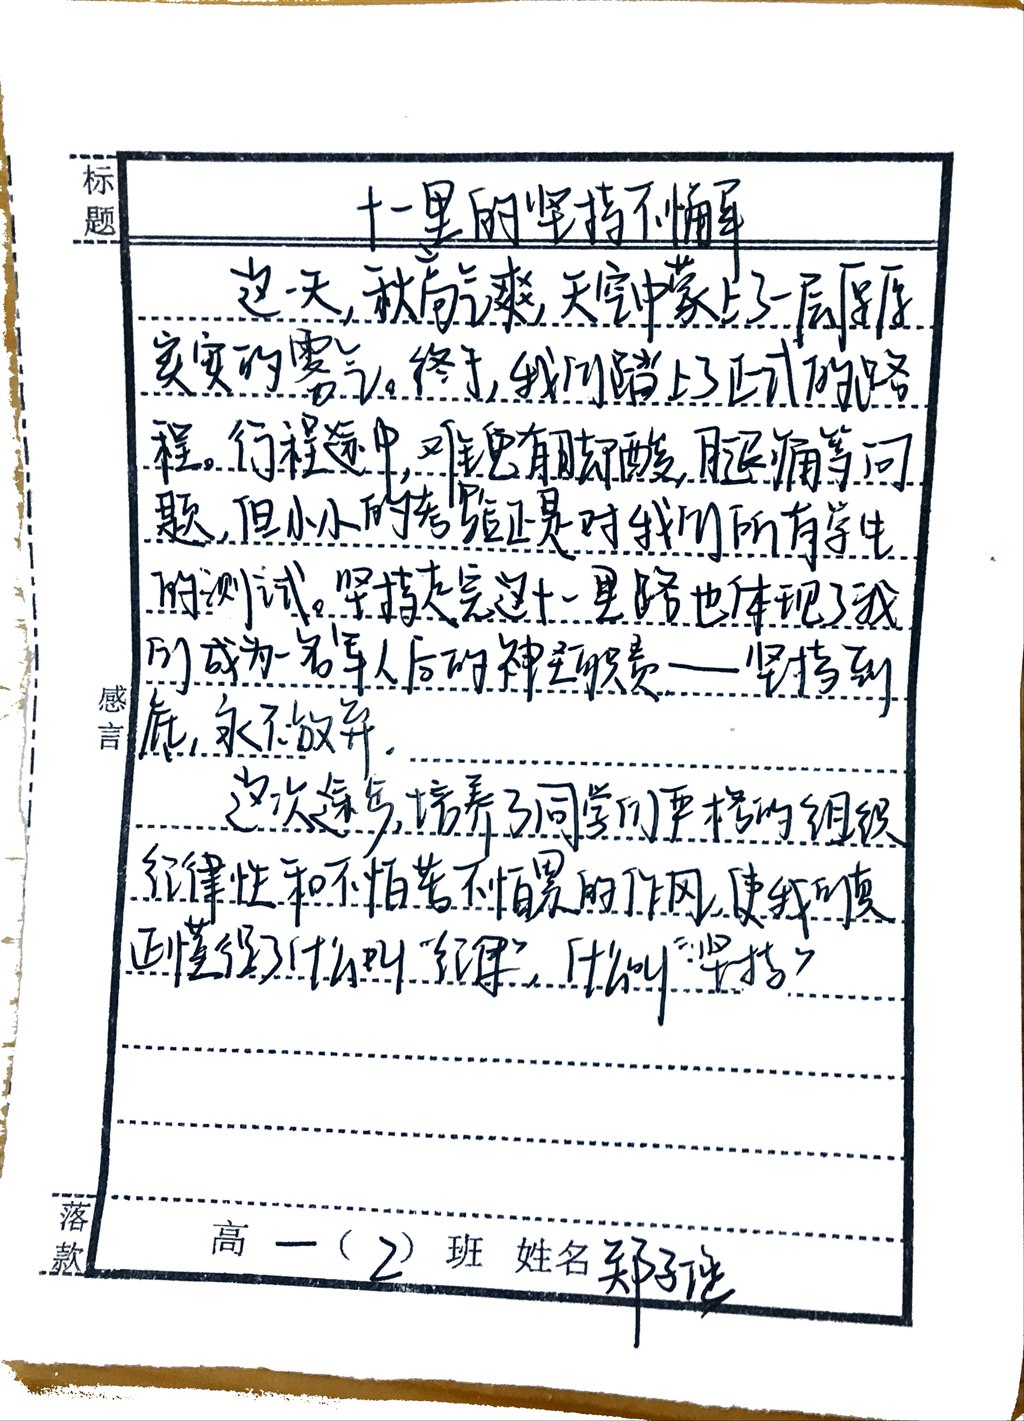 标题
十一里的坚持不懈
这一天，秋高气爽，天空中蒙上了一层厚厚
实实的雾气。终于，我们踏上了正式的路
程。行程途中，难免有脚酸，腿痛等问
题，但小小的考验正是对我们所有学生
的测试。坚持走完这十一里路也体现了我
们成为一名军人后的神圣职责——坚持到
底，永不放弃.
感言
这次途步，培养了同学们严格的组织
纪律性和不怕苦不怕累的作风，使我们真
正懂得了什么叫“纪律”，什么叫“坚持”
落款
高一（2）班 姓名 郑子